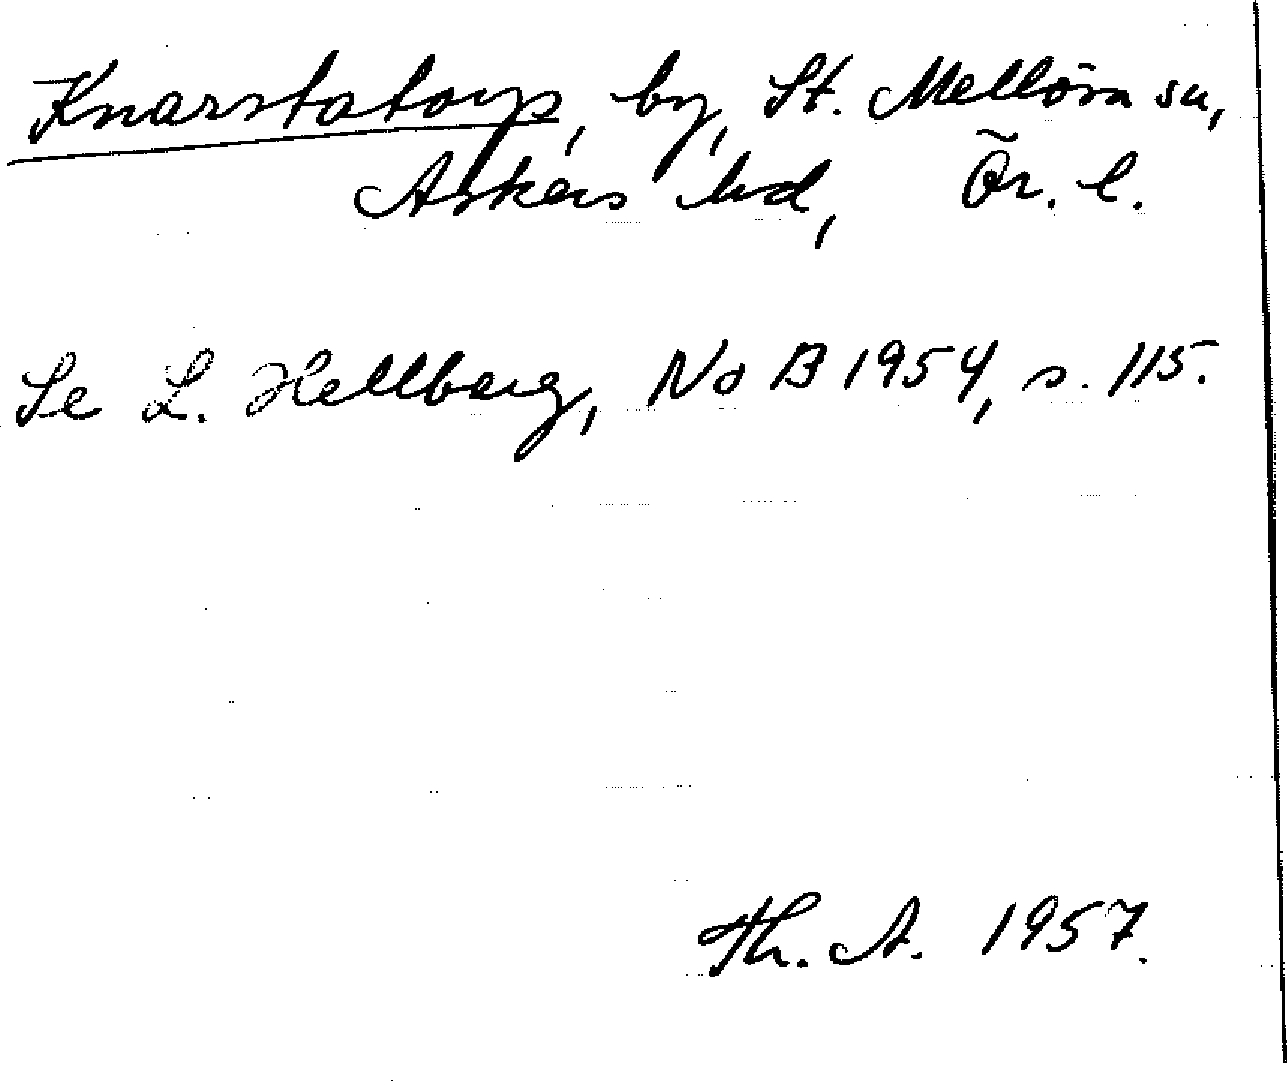 Knarstatorp, by, St. Mellösa sn,
Askers hd, Ör. l.
Se L. Hellberg, NoB 1954, s. 115.
Th. A. 1957.